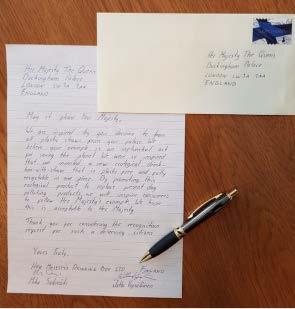 Her Majesty The Queen
Buckingham Palace
LONDON SW1A 1AA
ENGLAND
Her Majesty The Queen
Buckingham Palace
LONDON SW1A 1AA
ENGLAND
May it please Your Majesty,
We are inspired by your decision to ban
all plastic straws from your palace. We
believe your example is an important act
for saving the planet. We were so inspired
that we invented a new ecological drink-
with straw that is plastic free and fully
in one piece. By promoting this
ecological product to replace present day
polluting products, we will inspire consumers
to follow Her Majesty's example. We hope
this is acceptable to Her Majesty.
Thank you for considering the recognition
request for such a deserving citizen.
Yours Truly,
Her Majesty's Drinking LTD ENGLAND
Mike